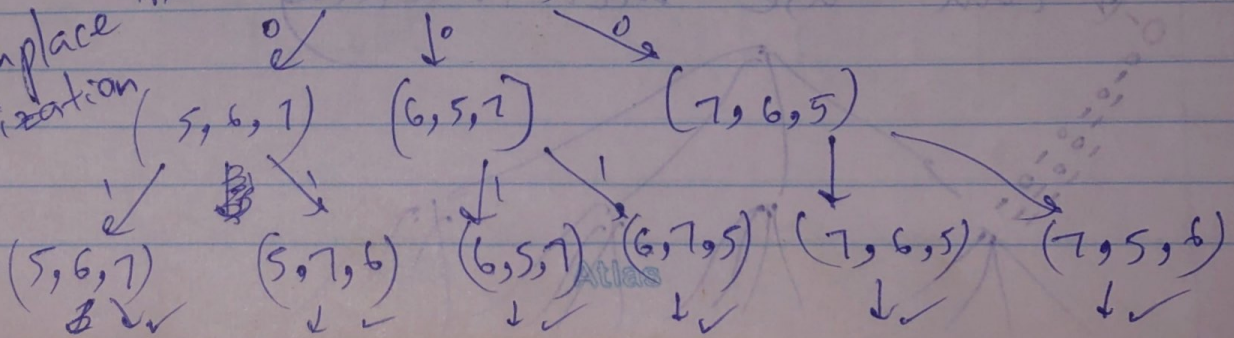 nplace 0 0 0
ization (5,6,7) (6,5,7) (7,6,5)
1 1 1 1
(5,6,7) (5,7,6) (6,5,7) (6,7,5) (7,6,5) (7,5,6)
Atlas
↓✓ ↓✓ ↓✓ ↓✓ ↓✓ ↓✓